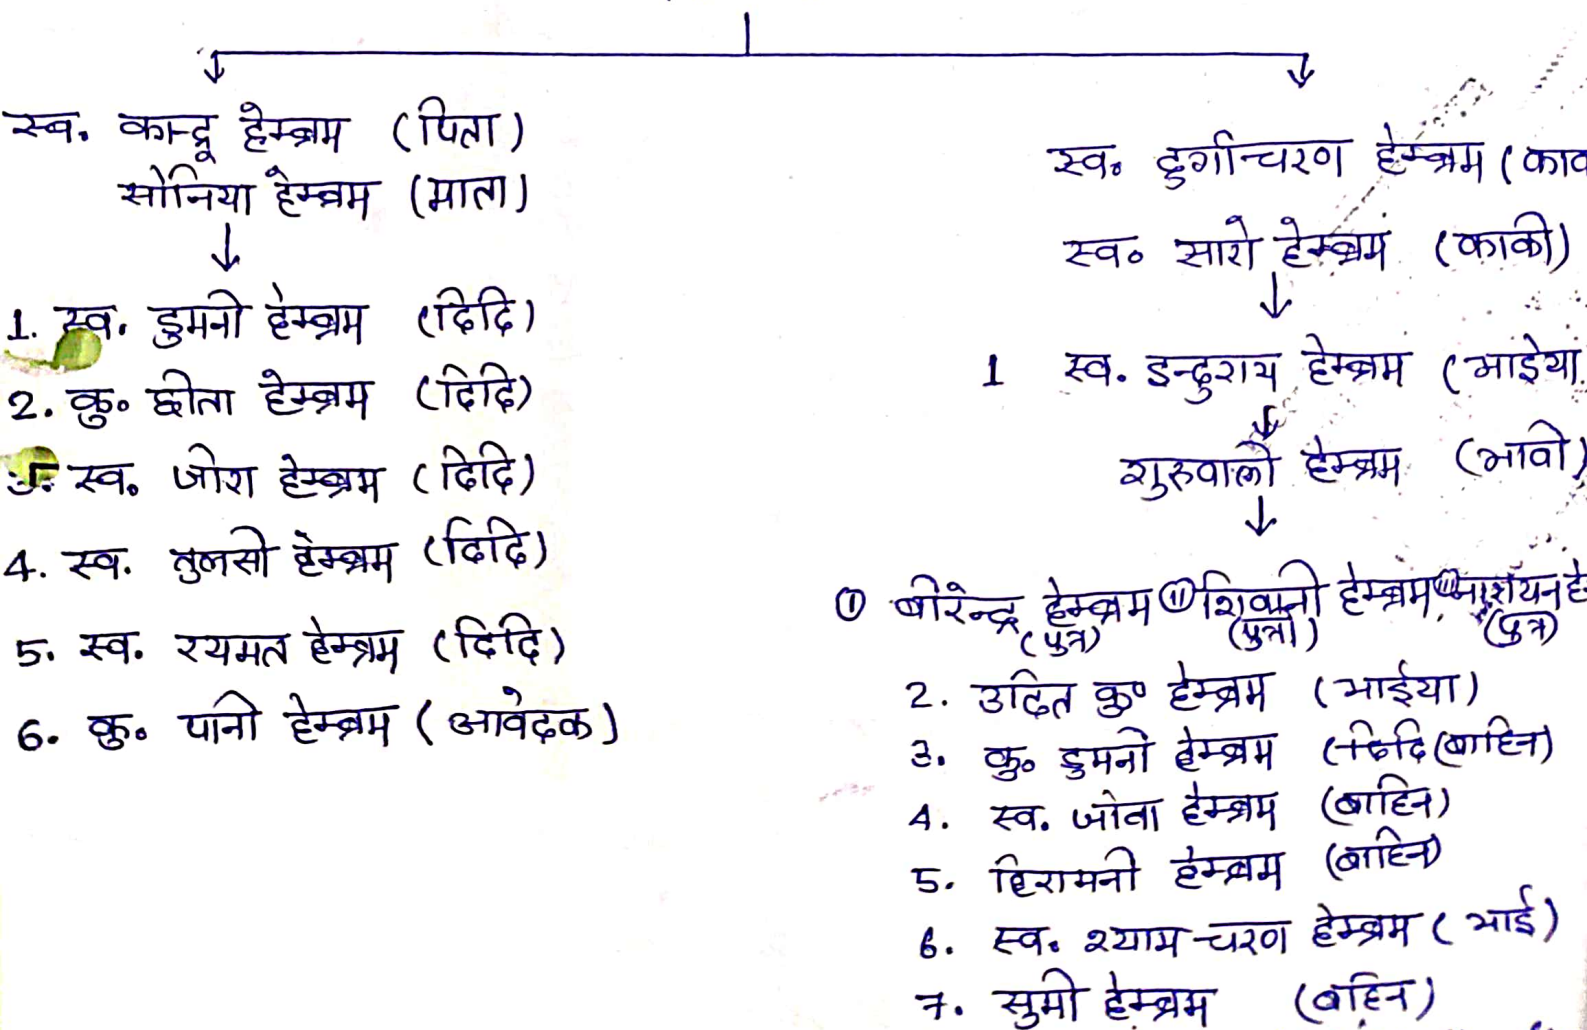 स्व. कान्द्रू हेम्ब्रम (पिता)
सोनिया हेम्ब्रम (माता)
1. स्व. डुमनी हेम्ब्रम (दिदि)
2. कु० छीता हेम्ब्रम (दिदि)
3. स्व. जोरा हेम्ब्रम (दिदि)
4. स्व. तुलसी हेम्ब्रम (दिदि)
5. स्व. रयमत हेम्ब्रम (दिदि)
6. कु. पानी हेम्ब्रम (आवेदक)
स्व. दुर्गाचरण हेम्ब्रम (काव
स्व० सारो हेम्ब्रम (काकी)
1 स्व. इन्दुराय हेम्ब्रम (भाईया
शुरुवाली हेम्ब्रम (भावी)
(i) बीरेन्द्र हेम्ब्रम (ii) शिवानी हेम्ब्रम (iii) नारायन हे
(पुत्र) (पुत्री) (पुत्र)
2. उदित कु० हेम्ब्रम (भाईया)
3. कु. डुमनी हेम्ब्रम (दिदि (बाहिन)
4. स्व. जोबा हेम्ब्रम (बाहिन)
5. हिरामनी हेम्ब्रम (बाहिन)
6. स्व. श्याम चरण हेम्ब्रम (भाई)
7. सुमी हेम्ब्रम (बहिन)